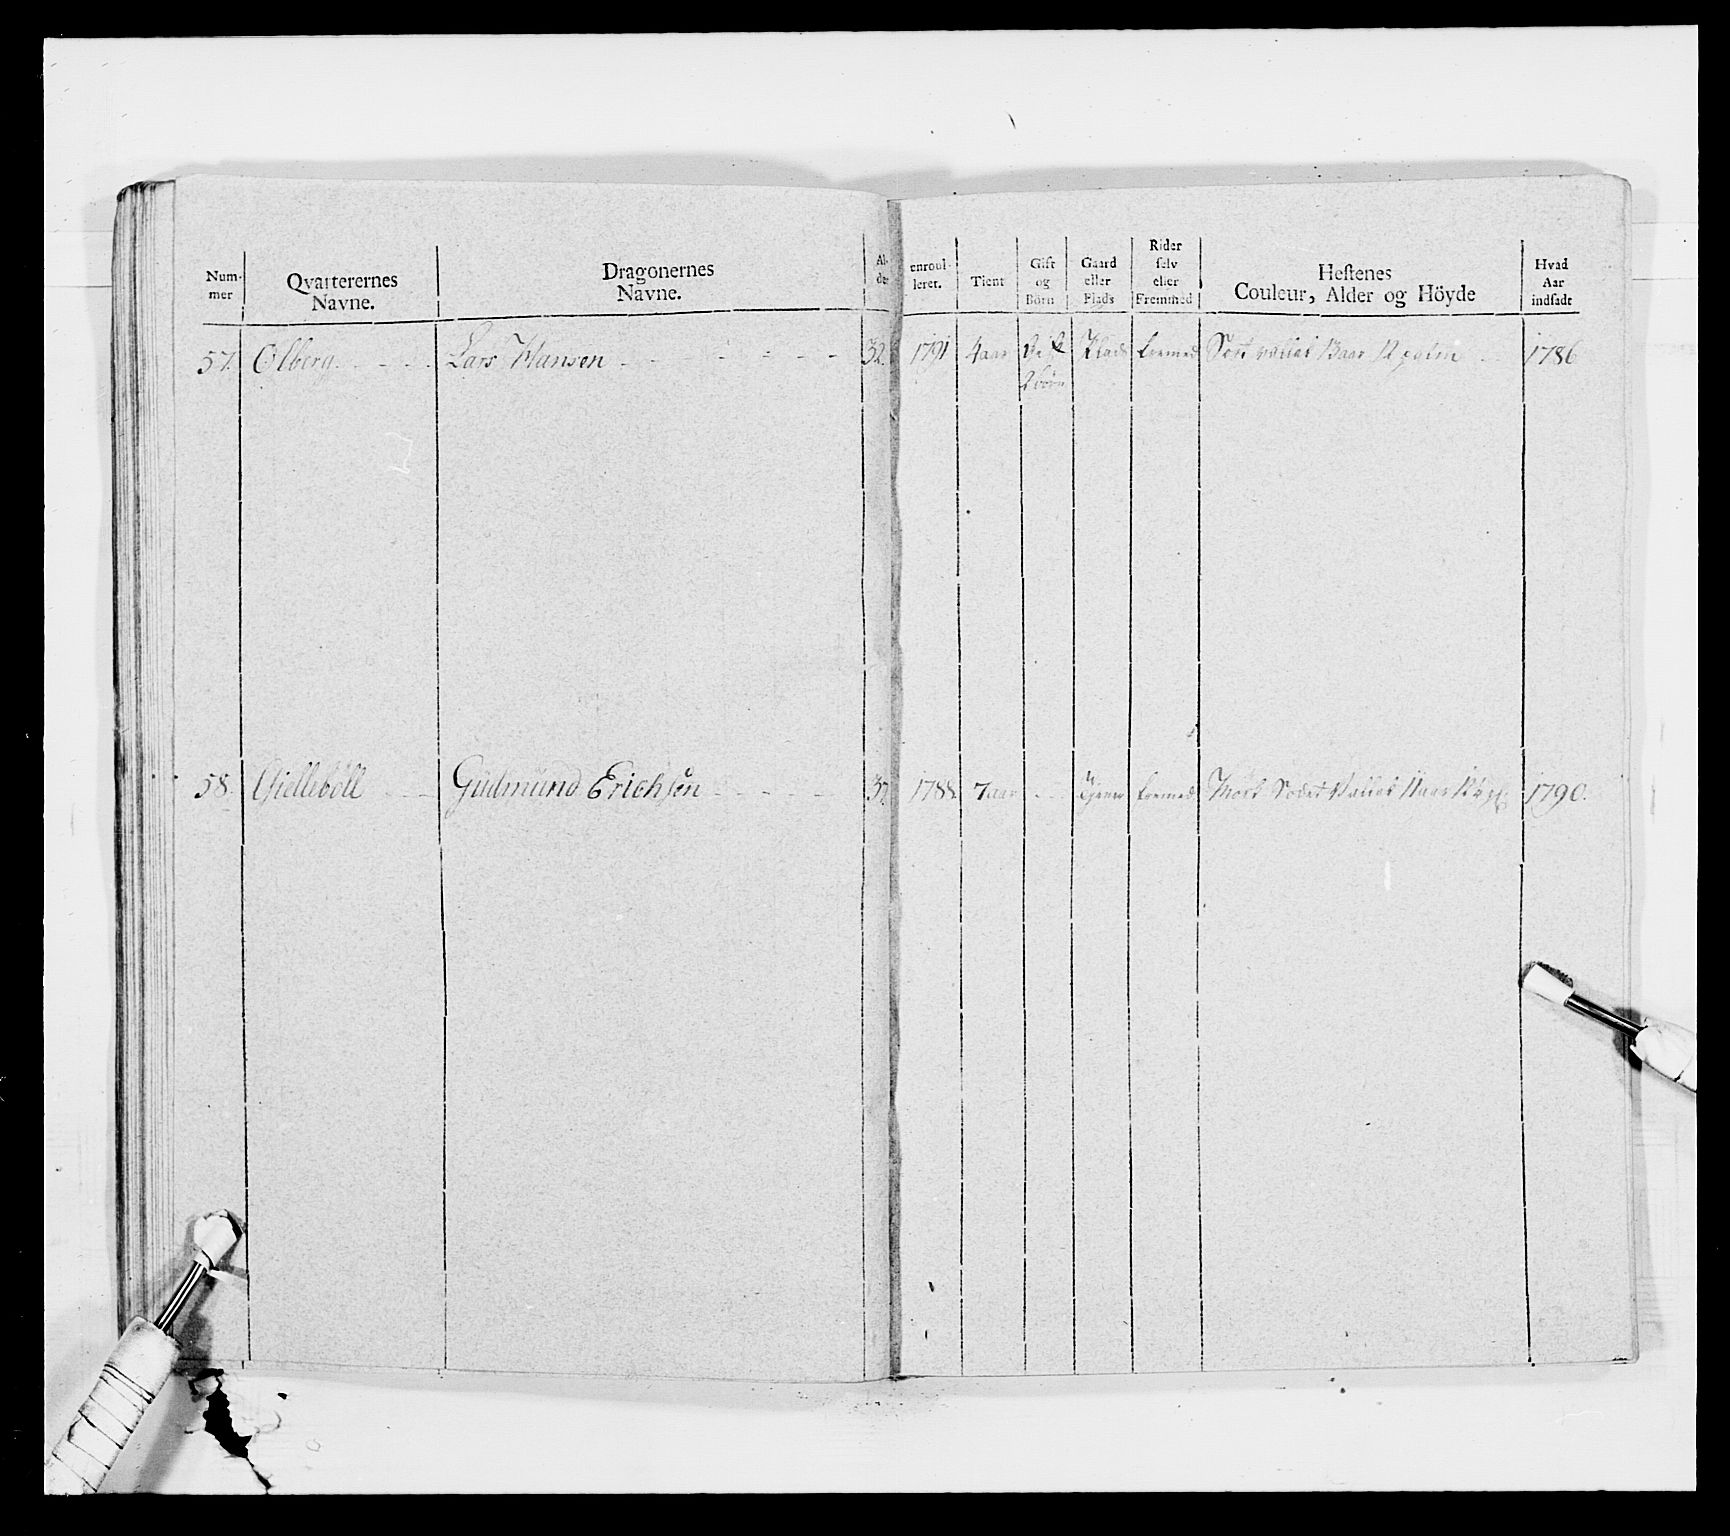 Num-
mer
Qvarterernes
Navne.
Dragonernes
Navne.
Al-
der
enroul-
leret.
Tient
Gift
og
Börn
Gaard
eller
Plads
Rider
selv
eller
Fremmed
Hestenes
Couleur, Alder og Höyde
Hvad
Aar
indsadt
57. Ölberg Lars Hansen 32. 1791 4 aar Gift Plads fremed Sort vallak 13 aar 12 palm 1786
2 börn
58. Gielleböll Gudmund Erichsen 37. 1788. 7 aar tjener fremed Mörk Vallak 11 aar 1790.